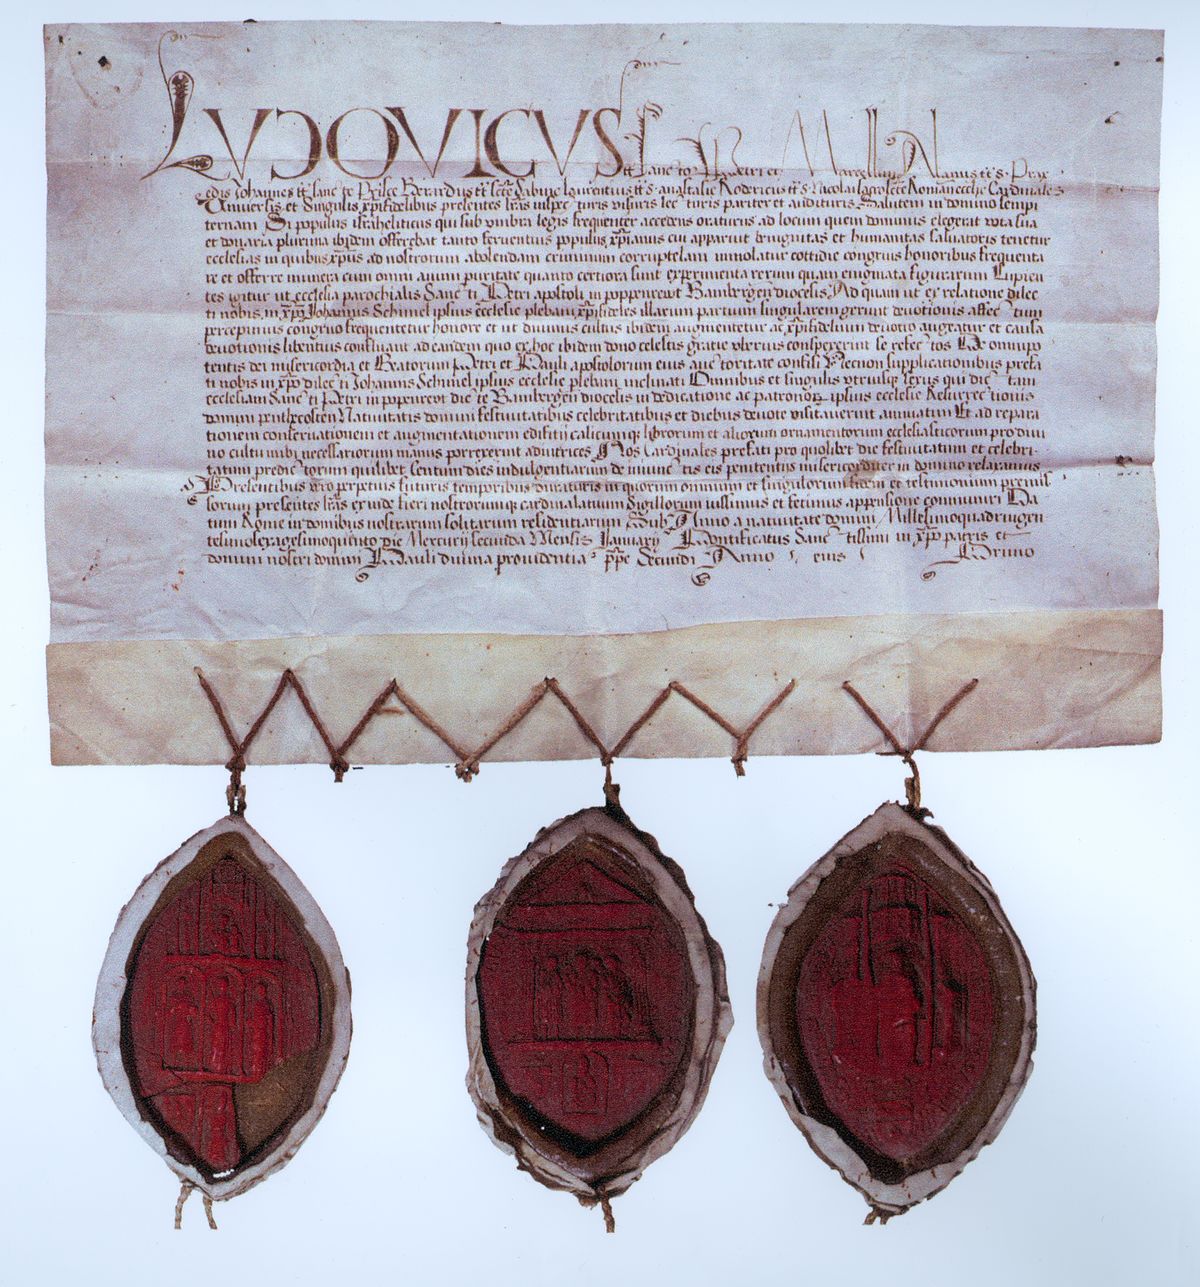 LUDOVICUS tt Sanctor Petri et Marcellini Alanus tt s. Prax
edis Johannes tt sancte Prisce Berardus tt sctē Sabine Laurentius tt s. anastasie Rodericus tt s. Nicolai sacrosctē Romane ecclie Cardinales
Universis et Singulis xp̄ifidelibus presentes lr̄as inspecturis visuris lecturis pariter et audituris Salutem in domino sempi
ternam Si populus israheliticus qui sub umbra legis frequenter accedens oraturus ad locum quem dominus elegerat vota sua
et donaria plurima ibidem offerebat tanto ferventius populus xp̄ianus cui apparuit benignitas et humanitas salvatoris tenetur
ecclesias in quibus xp̄us ad nostrorum abolendam criminum corruptelam immolatur cottidie congruis honoribus frequenta
re et offerre munera cum omni animi puritate quanto certiora sunt experimenta rerum quam enigmata figurarum Cupien
tes igitur ut ecclesia parochialis Sancti Petri apostoli in poppenrewt Bambergen̄ diocesis Ad quam ut ex relatione dilec
ti nobis in xp̄o Johannis Schimel ipsius ecclesie plebani xp̄ifideles illarum partium singularem gerunt devotionis affectum
percepimus congruo frequentetur honore et ut divinus cultus ibidem augmentetur ac xp̄ifidelium devotio augeatur et causa
devotionis libentius confluant ad eandem quo ex hoc ibidem dono celestis gratie uberius conspexerint se refectos De omnipo
tentis dei misericordia et Beatorum Petri et Pauli apostolorum eius auctoritate confisi Necnon supplicationibus prefa
ti nobis in xp̄o dilecti Johannis Schimel ipsius ecclesie plebani inclinati Omnibus et singulis utriusque sexus qui dictam
ecclesiam Sancti Petri in popenreut dicte Bambergen̄ diocesis in dedicatione ac patronor ipsius ecclesie Resurrectionis
domini penthecosten Nativitatis domini festivitatibus celebritatibus et diebus devote visitaverint annuatim Et ad repara
tionem conservationem et augmentationem edifitii calicumque librorum et aliorum ornamentorum ecclesiasticorum pro divi
no cultu inibi necessariorum manus porrexerint adiutrices Nos Cardinales prefati pro qualibet die festivitatum et celebri
tatum predictorum quilibet centum dies indulgentiarum de iniunctis eis penitentiis misericorditer in domino relaxamus
Presentibus vero perpetuis futuris temporibus duraturis in quorum omnium et singulorum fidem et testimonium premis
sorum presentes lr̄as exinde fieri nostrorumque cardinalatuum Sigillorum iussimus et fecimus appensione communiri Da
tum Rome in domibus nostrarum solitarum residentiarum Sub Anno a nativitate domini Millesimoquadringen
tesimosexagesimoquinto die Mercurij secunda Mensis Januarij Pontificatus Sanctissimi in xp̄o patris et
domini nostri domini Pauli divina providentia pp̄e Secundi Anno eius Primo